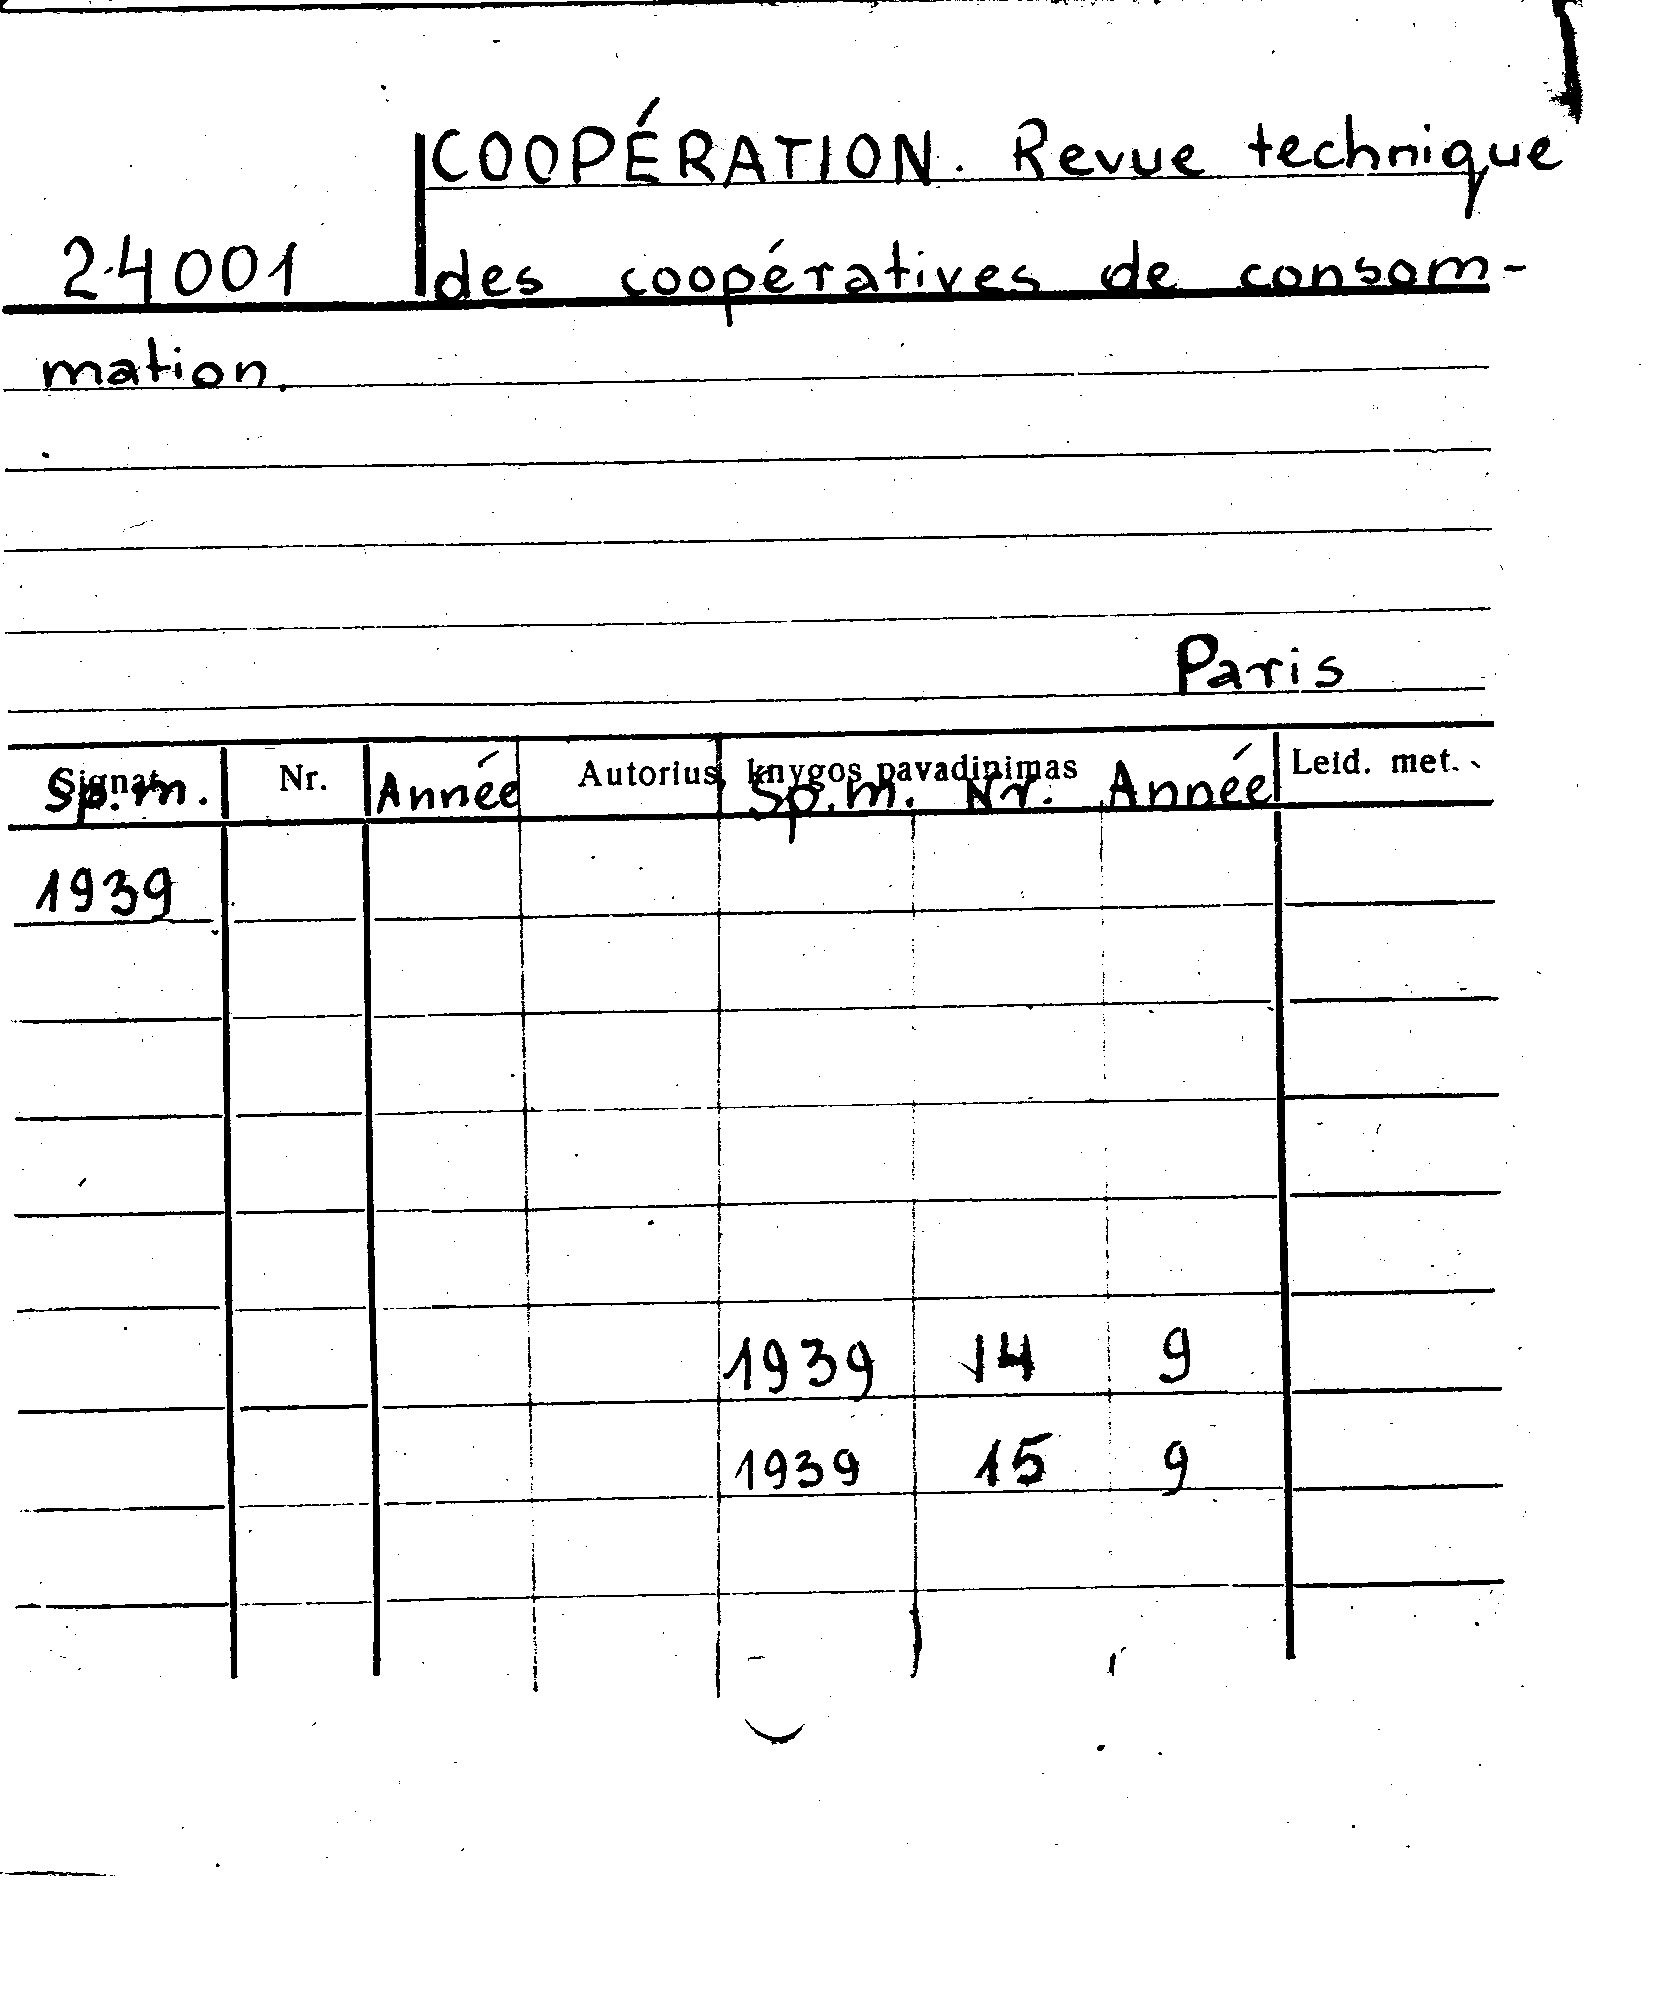 COOPÉRATION. Revue technique
24001 des coopératives de consom-
mation.
Paris
Signat. Nr. Autorius, knygos pavadinimas Leid. met.
Sp.m. Année Sp.m. Nr. Année
1939
1939 14 9
1939 15 9